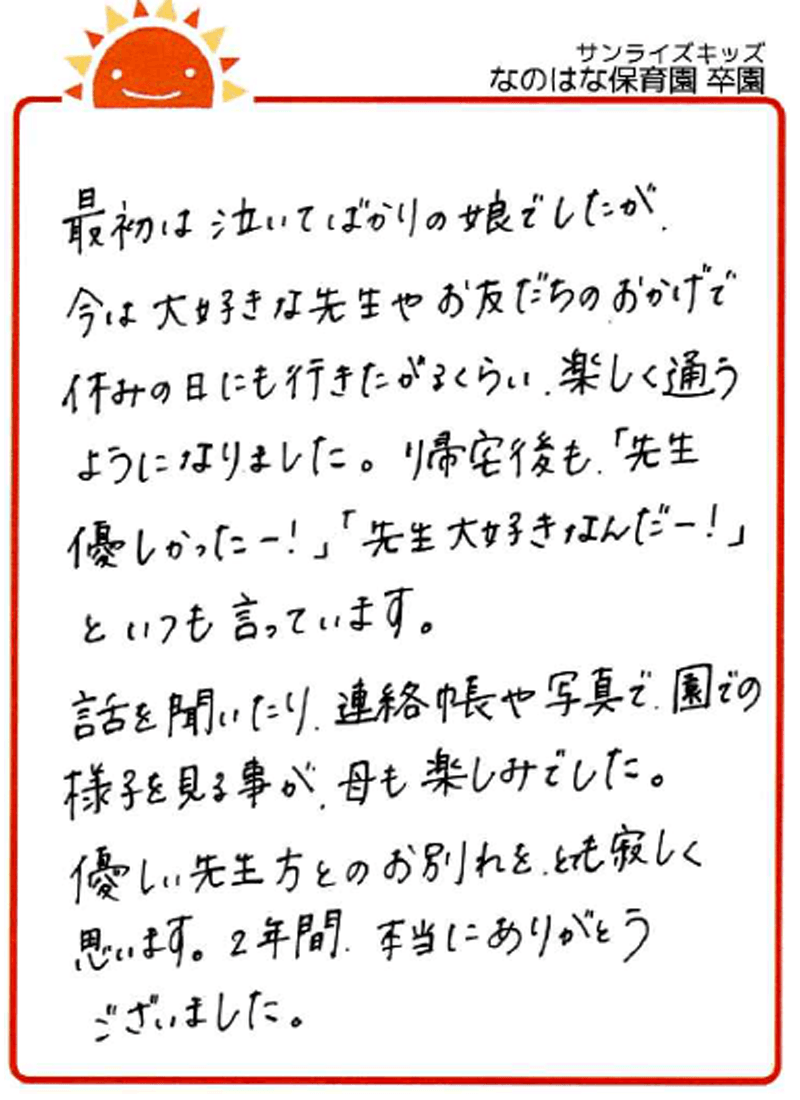 サンライズキッズ
なのはな保育園 卒園
最初は泣いてばかりの娘でしたが、
今は大好きな先生やお友だちのおかげで
休みの日にも行きたがるくらい、楽しく通う
ようになりました。帰宅後も、「先生
優しかったー!」「先生大好きなんだー!」
といつも言っています。
話を聞いたり、連絡帳や写真で、園での
様子を見る事が、母も楽しみでした。
優しい先生方とのお別れを、とても寂しく
思います。2年間、本当にありがとう
ございました。